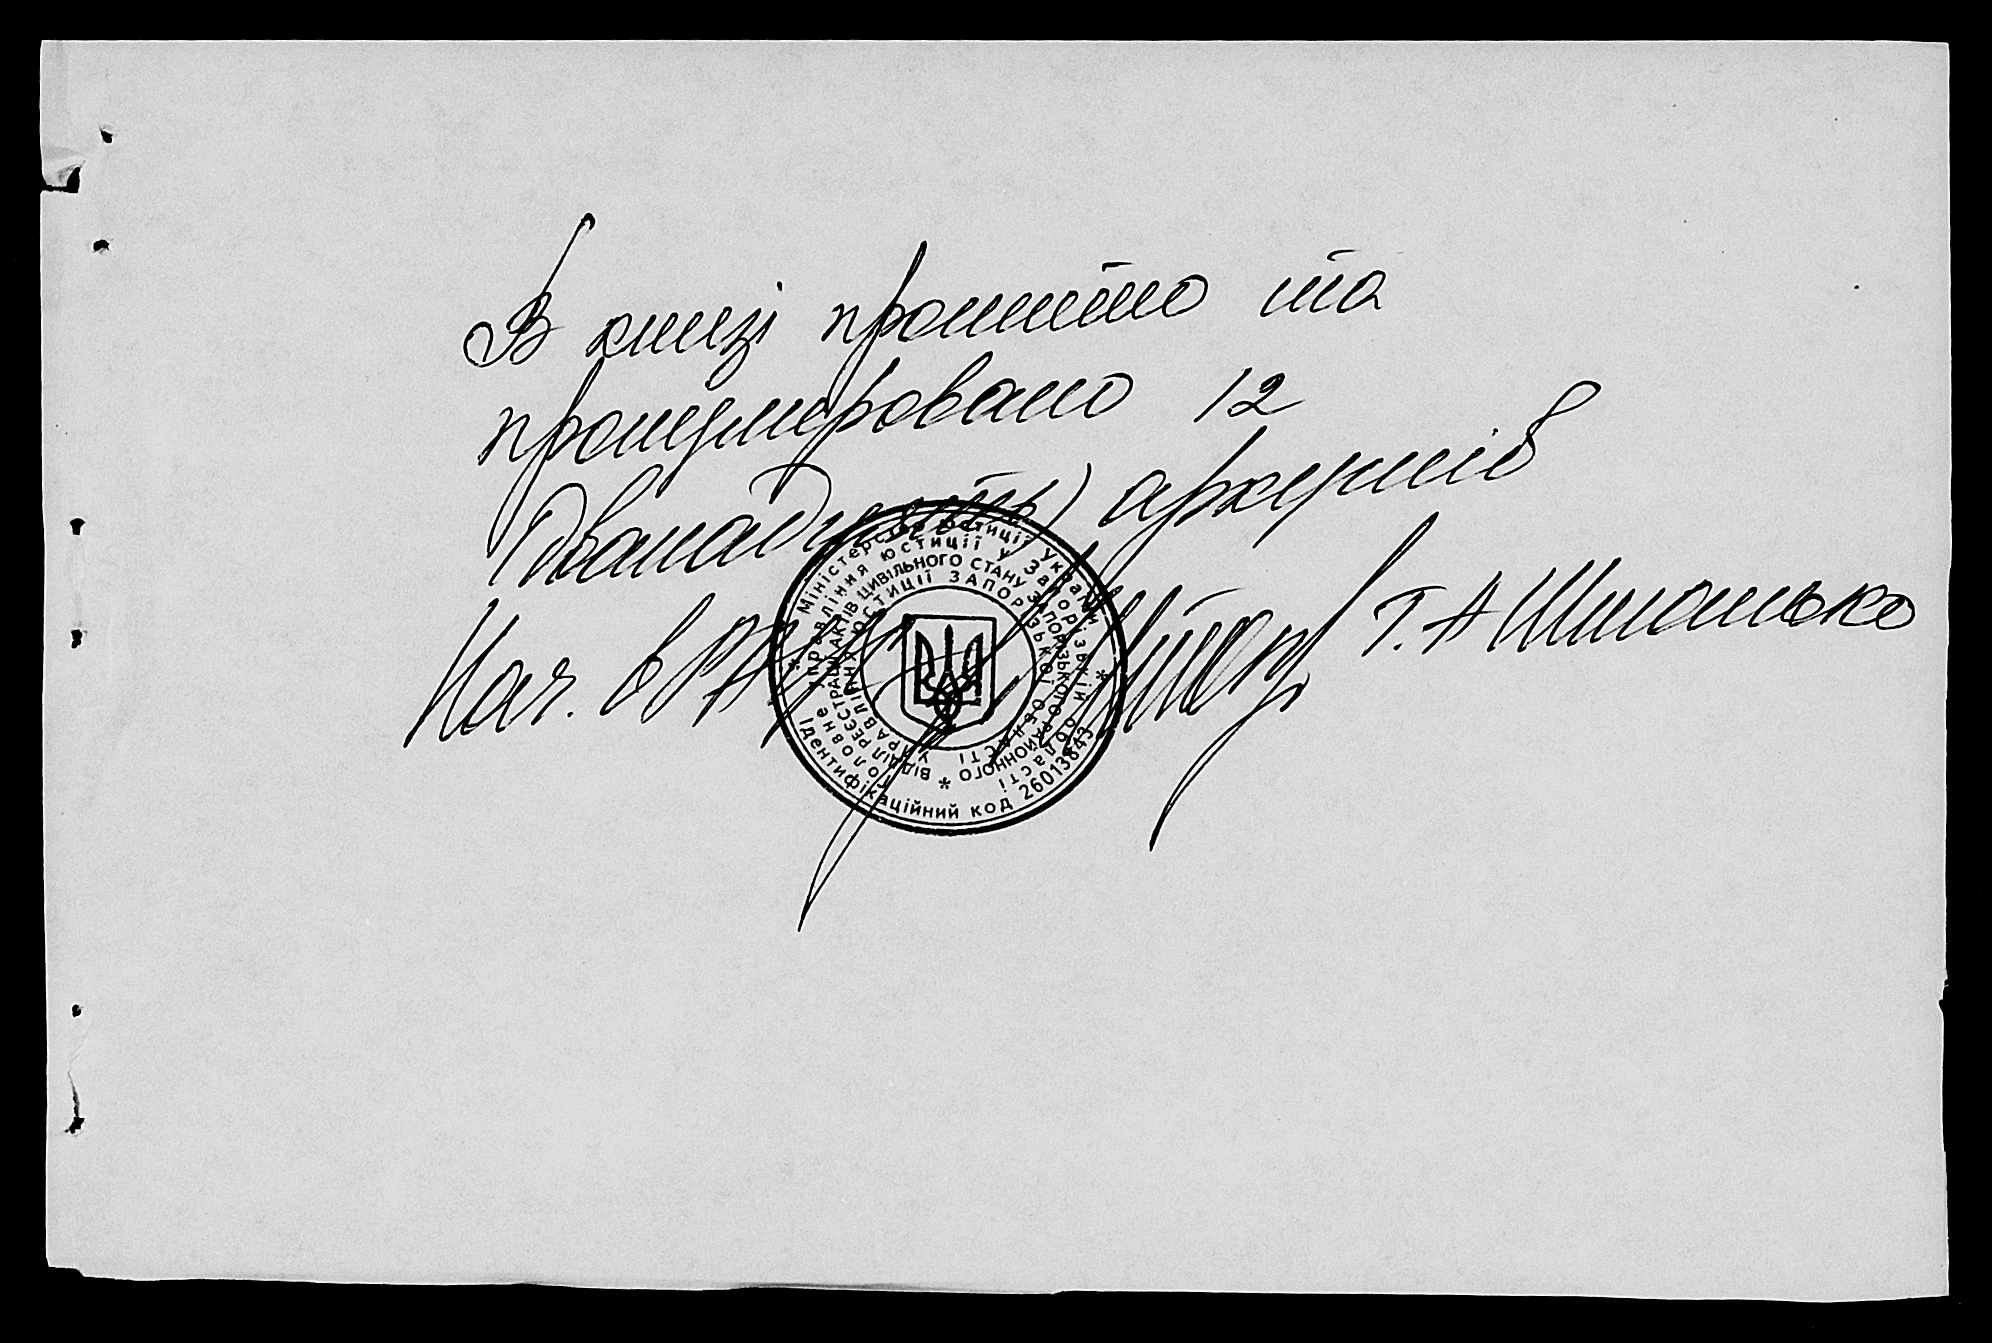 В книзі прошито та
пронумеровано 12
(дванадцять) аркушів
Нач. вРАЦС Т. А
* Міністерство юстиції України *
Ідентифікаційний код 26013843
Головне управління юстиції у Запорізькій області
ВІДДІЛ РЕЄСТРАЦІЇ АКТІВ ЦИВІЛЬНОГО СТАНУ ЗАПОРІЗЬКОГО РАЙОННОГО *
УПРАВЛІННЯ ЮСТИЦІЇ ЗАПОРІЗЬКОЇ ОБЛАСТІ